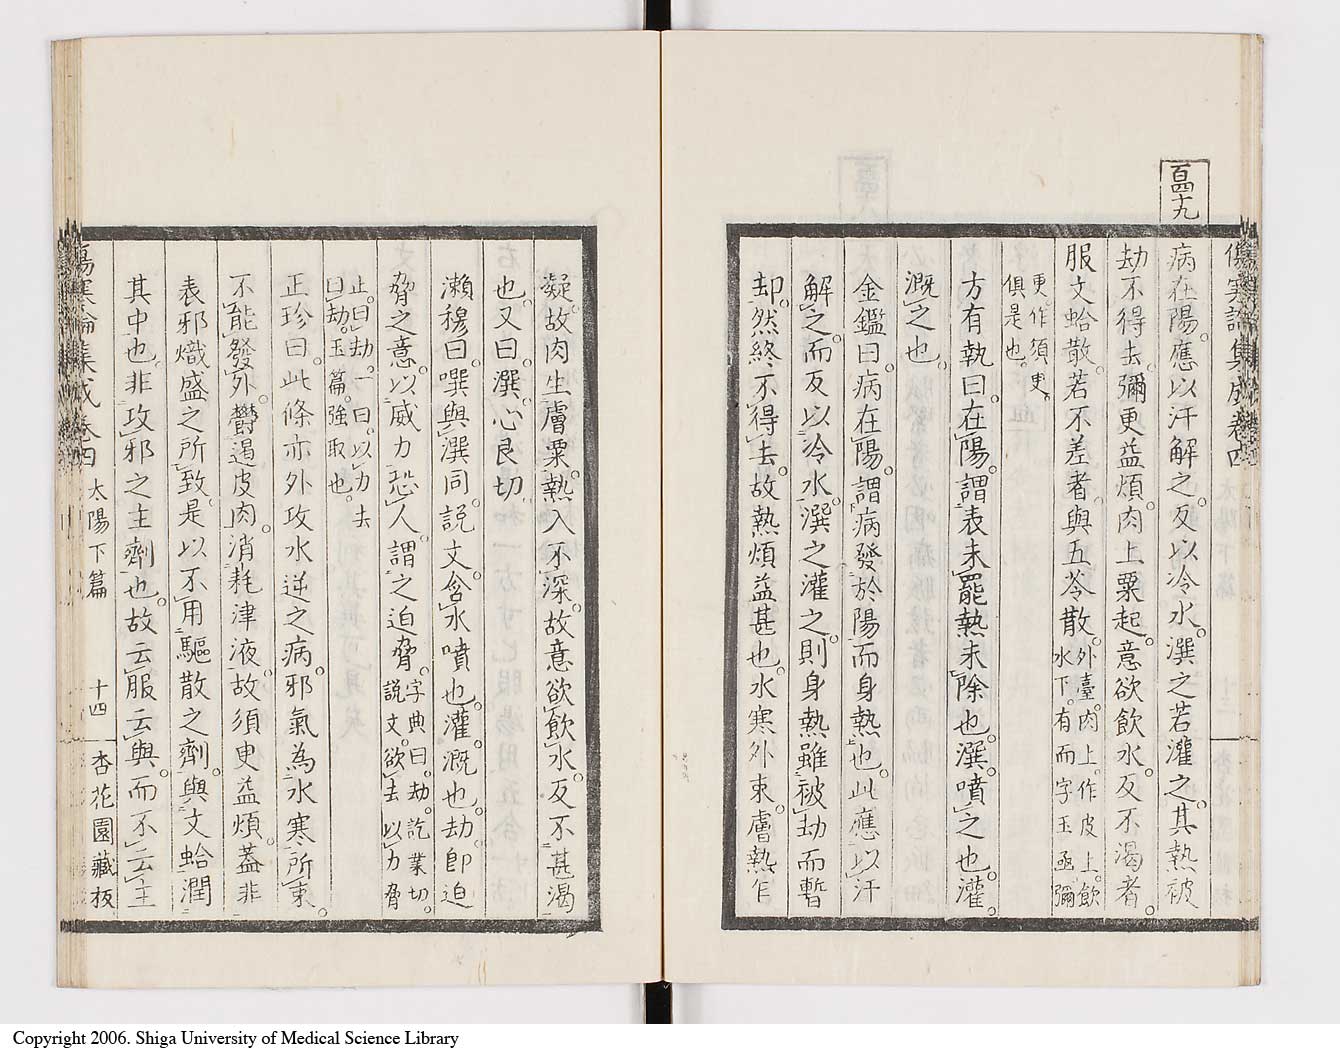 百四十九
傷寒論集成卷四
病在陽。應以汗解之。反以冷水。潠之若灌之。其熱被
劫不得去。彌更益煩。肉上粟起。意欲飲水。反不渴者。
服文蛤散。若不差者。與五苓散。外臺。肉上。作皮上。飲
水下。有而字玉函彌
更。作須臾。
俱是也。
方有執曰。在陽。謂表未罷熱未除也。潠。噴之也。灌。
溉之也。
金鑑曰。病在陽。謂病發於陽而身熱也。此應以汗
解之。而反以冷水。潠之灌之。則身熱雖被劫而暫
却。然終不得去。故熱煩益甚也。水寒外束。膚熱乍
凝。故肉生膚粟。熱入不深。故意欲飲水。反不甚渴
也。又曰。潠。心艮切。
瀨穆曰。噀與潠同。說文。含水噴也。灌。溉也。劫。卽迫
脅之意。以威力恐人。謂之迫脅。字典曰。劫。訖業切。
說文。欲去以力脅
止。曰劫。一曰。以力去
曰劫。玉篇。強取也。
正珍曰。此條亦外攻水逆之病。邪氣為水寒所束。
不能發外。鬱遏皮肉。消耗津液。故須臾益煩。蓋非
表邪熾盛之所致。是以不用驅散之劑。與文蛤潤
其中也。非攻邪之主劑也。故云服云與。而不云主
傷寒論集成卷四 太陽下篇 十四 杏花園藏板
Copyright 2006. Shiga University of Medical Science Library